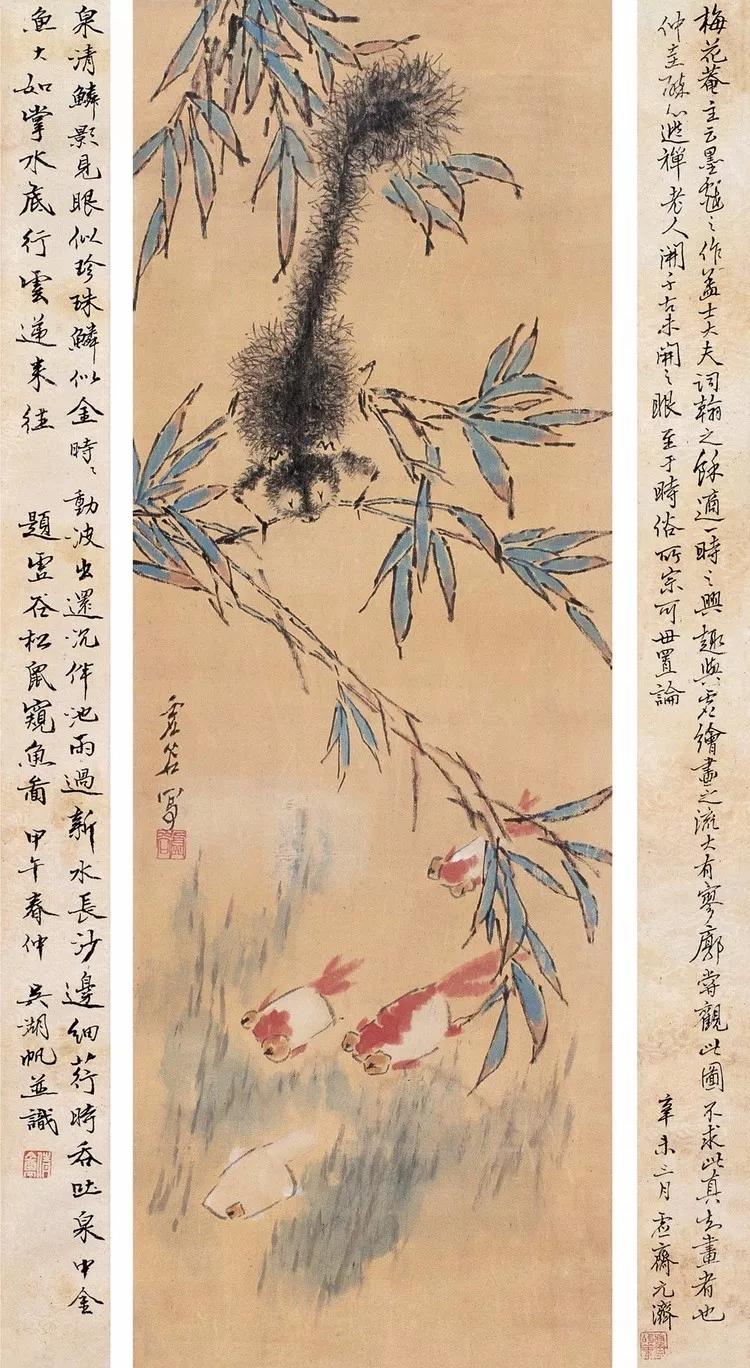 梅花菴主云墨戲之作蓋士大夫詞翰之餘適一時之興趣與夫繪畫之流大有寥廓嘗觀此圖不求此真畫者也
仲圭心逃禪老人開千古未開之眼至于時俗所宗可毋置論
辛未三月虛齋元濟
虛谷寫
虛谷
泉清鱗影見眼似珍珠鱗似金時〻動波出還沉伴池雨過新水長沙邊細荇時吞吐泉中金
魚大如掌水底行雲遞來往 題虛谷松鼠窺魚圖 甲午春仲 吳湖帆並識